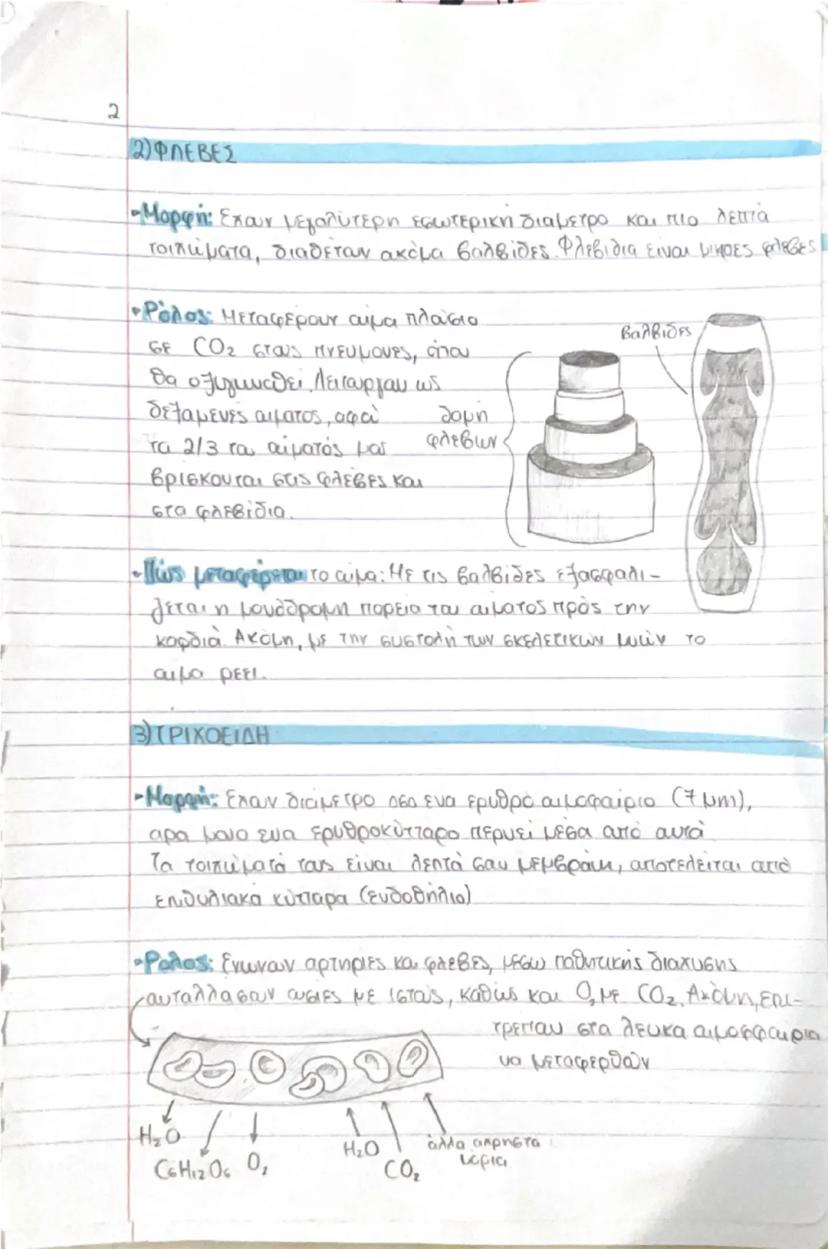 2
2) ΦΛΕΒΕΣ
Μορφή: Έχουν μεγαλύτερη εσωτερική διάμετρο και πιο λεπτά
τοιχώματα, διαθέτουν ακόμα βαλβίδες. Φλεβίδια είναι μικρές φλέβες
Ρόλος: Μεταφέρουν αίμα πλούσιο
σε CO₂ στους πνεύμονες, όπου
θα οξυγωνωθεί. Λειτουργούν ως
δεξαμενές αίματος, αφού
τα 2/3 του αίματός μας
βρίσκονται στις φλέβες και
στα φλεβίδια.
δομή
φλεβών
βαλβίδες
Πώς μεταφέρεται το αίμα: Με τις βαλβίδες εξασφαλί-
ζεται η μονόδρομη πορεία του αίματος πρός την
καρδιά. Ακόμη, με την συστολή των σκελετικών μυών το
αίμα ρέει.
3) ΤΡΙΧΟΕΙΔΗ
Μορφή: Έχουν διάμετρο όσο ένα ερυθρό αιμοφαίριο (7 μm),
άρα μόνο ένα ερυθροκύτταρο περνει μέσα από αυτά
Τα τοιχώματά τους είναι λεπτά σαν μεμβράνη, αποτελείται από
επιθυλιακά κύτταρα (ενδοθήλιο)
Ρόλος: Ενώνουν αρτηρίες κα φλέβες, μέσω παθητικής διάχυσης
ανταλλάσουν ουσίες με ιστούς, καθώς και O₂ με CO₂. Ακόμη, επι-
τρέπουν στα λευκά αιμοσφαίρια
να μεταφερθούν
H₂O
C₆H₁₂O₆
O₂
H₂O
CO₂
άλλα άχρηστα
μόρια